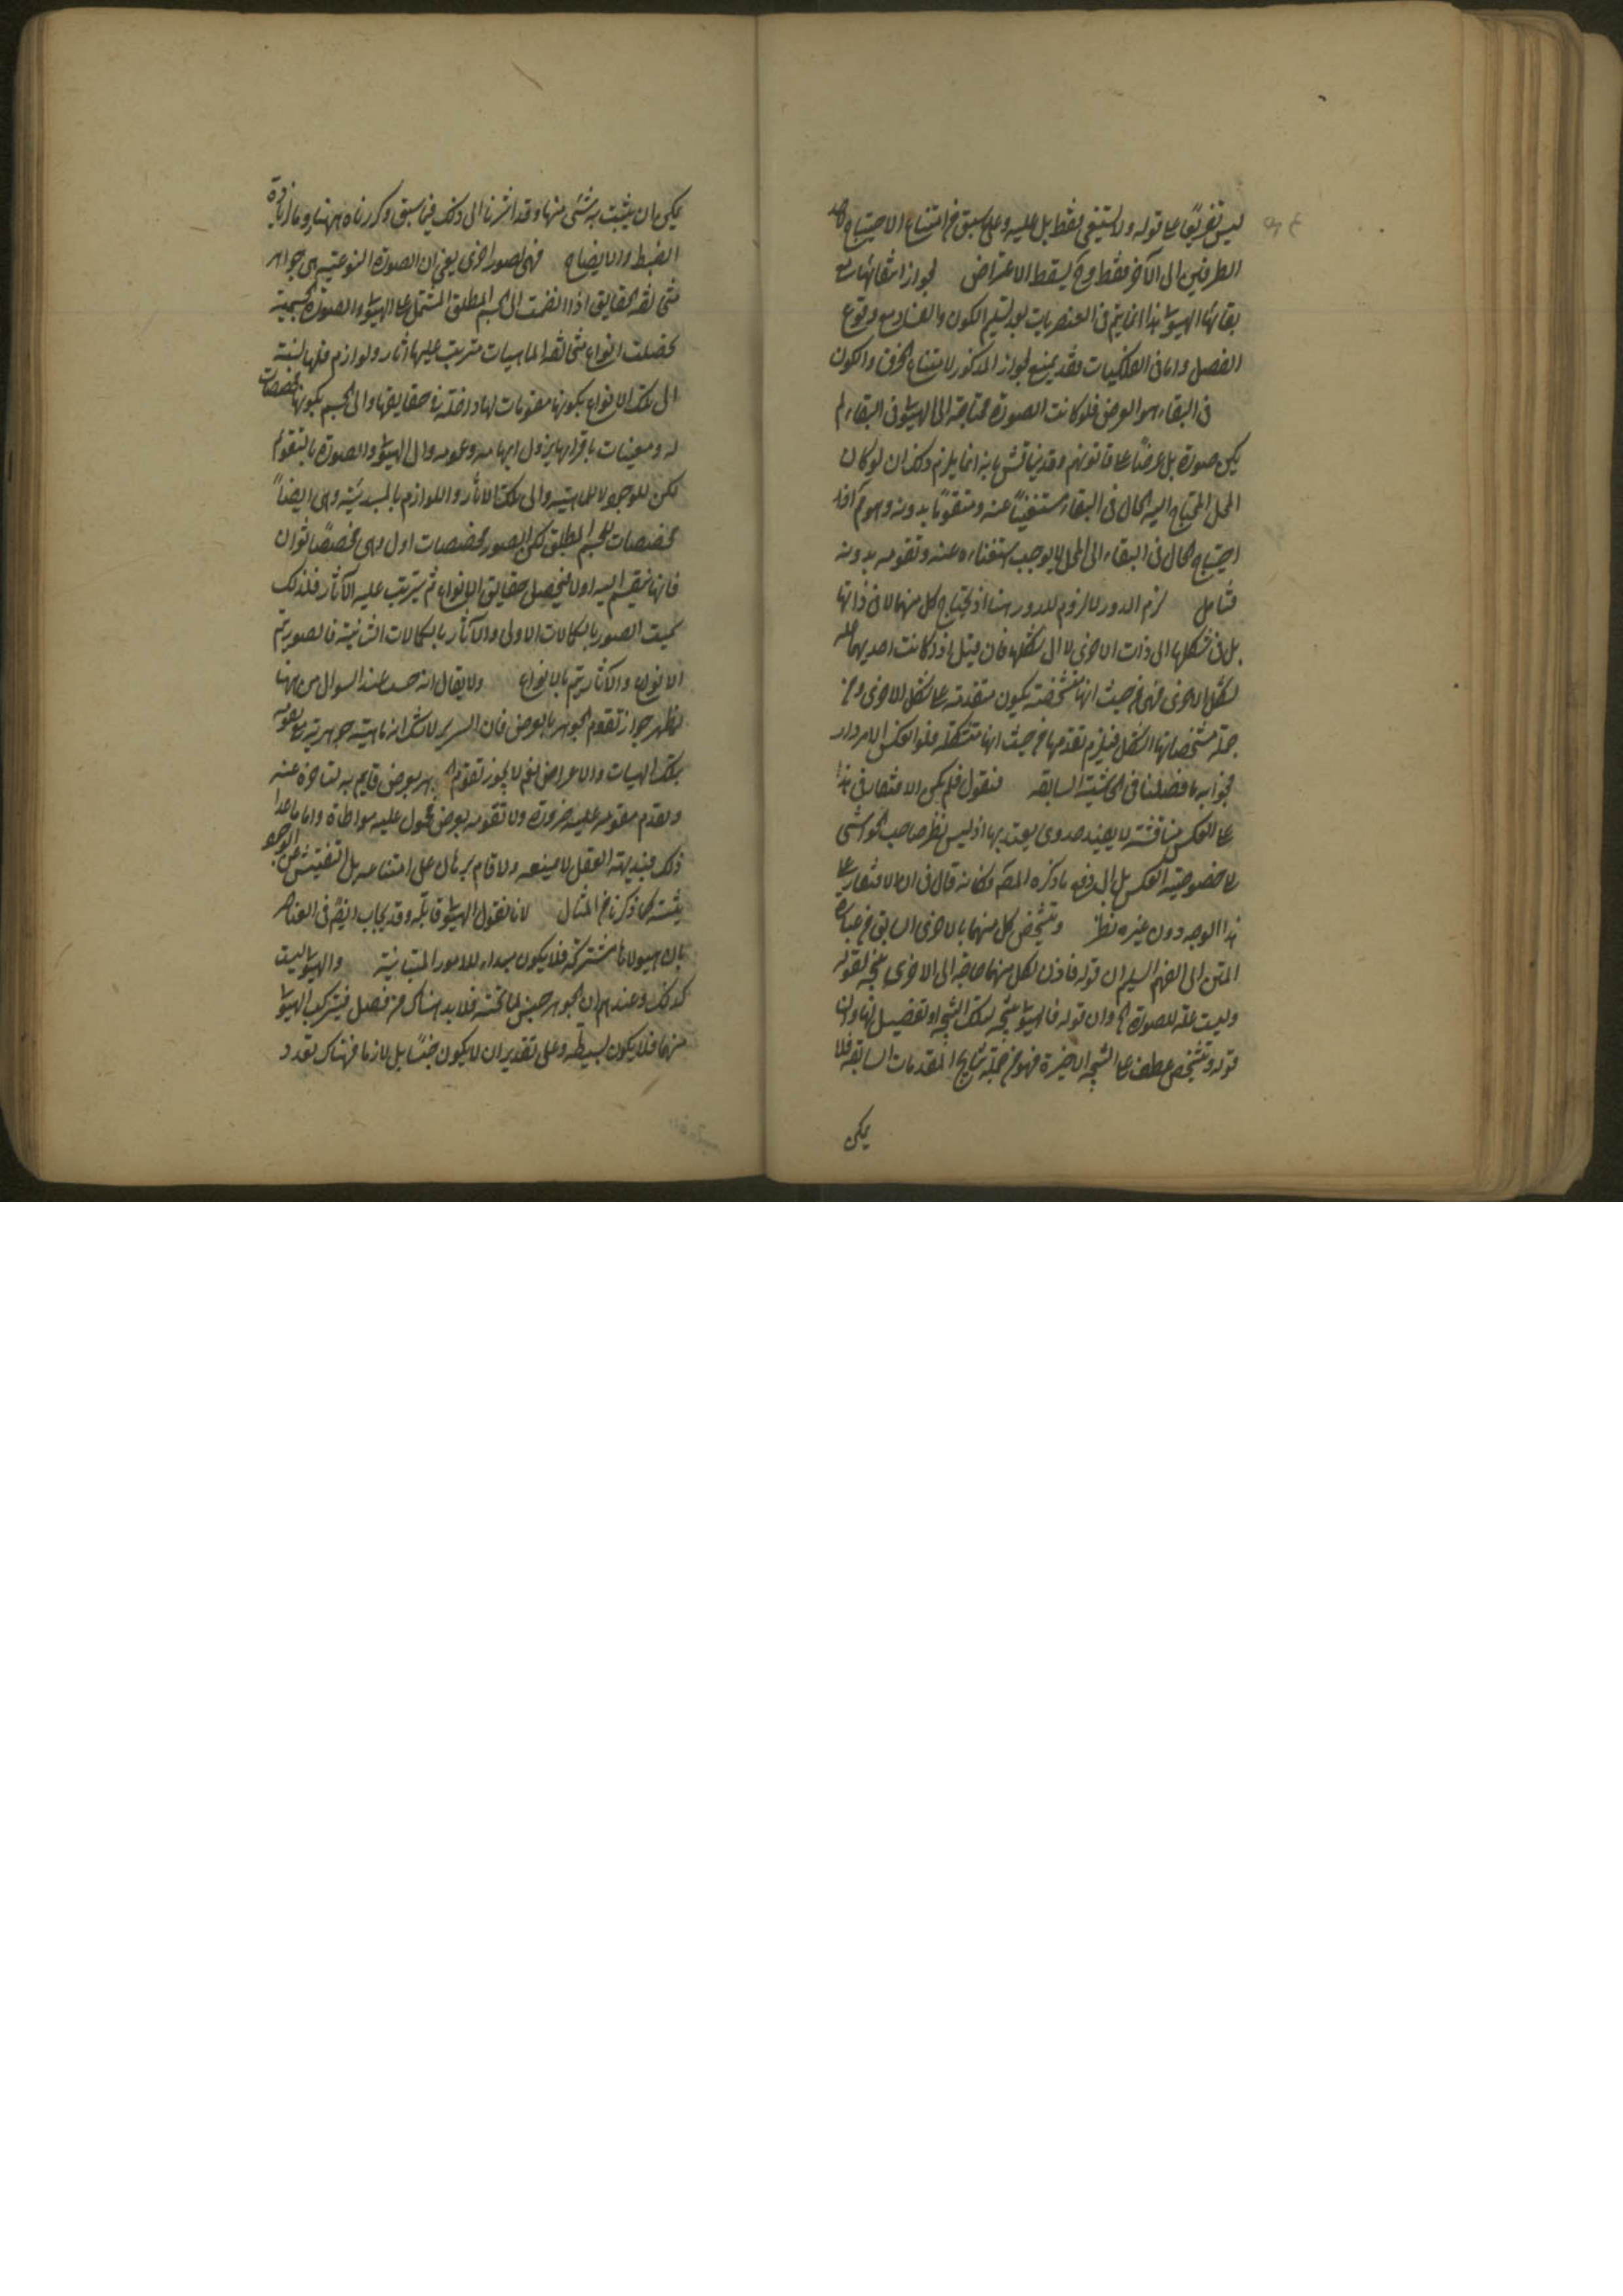 ليس تفريعًا على قوله ولا يستغنى فقط بل عليه وعلى ما سبق من امتناع الاحتياج من احد
الطرفين الى الآخر فقط وح يسقط الاعتراض لجواز انتفائها مع
بقائها الهيولى هذا انما يتم فى العنصريات بعد تسليم الكون والفساد مع وقوع
الفصل واما فى الفلكيات فقد يمنع الجواز المذكور لامتناع الخرق والكون
فى البقاء هو العرض فلو كانت الصورة محتاجة الى الهيولى فى البقاء لم
يكن صورة بل عرضًا على قانونهم وقد يناقش بانه انما يلزم ذلك ان لو كان
المحل المحتاج اليه الحال فى البقاء مستغنيًا عنه ومتقومًا بدونه وهو مم اذ
احتياج الحال فى البقاء الى المحل لا يوجب استغناءه عنه وتقومه بدونه
فتامل لزم الدور لا لزوم للدور هنا اذ يحتاج كل منهما لا فى ذاتها
بل فى تشكلها الى ذات الاخرى لا الى تشكلها فان قيل اذا كانت احديهما علة
لتشكل الاخرى فهى من حيث انها متشخصة يكون متقدمة على تشكل الاخرى ومن
جملة مشخصاتها التشكل فيلزم تقدمها من حيث انها متشكلة فلو انعكس الامر دار
فجوابه ما فصلنا فى الحاشية السابقة فنقول فلم يمكن الافتقار فى هذا
على العكس مناقشة لا يفيد جدوى يعتد بها اذ ليس نظر صاحب الحواشى
لا خصوصية العكس بل الى دفع ما ذكره المص وكانه قال فى الافتقار على
هذا الوجه دون غيره نظر وتشخص كل منهما بالاخرى السابق من عبارة
المتن الى الفهم السليم ان قوله فاذن لكل منهما حاجة الى الاخرى نتيجة لقوله
وليست علة للصورة الخ وان قوله فالهيولى نتيجة لتلك النتيجة او تفصيل لها وان
قوله وتشخص عطف على النتيجة الاخيرة فهو من جملة نتايج المقدمات السابقة فلا
يمكن
يمكن ان يثبت به شئ منها وقد اشرنا الى ذلك فيما سبق وكررناه ههنا روما لزيادة
الضبط والايضاح فهى لصور اخرى يعنى ان الصورة النوعية هى جواهر
متخالفة الحقايق اذا انضمت الى الجسم المطلق المشتمل على الهيولى والصورة الجسمية
تحصلت انواع متخالفة الماهيات مترتب عليها آثار ولوازم فلها نسبة
الى تلك الانواع بكونها مقومات لها داخلة فى حقايقها والى الجسم بكونها مخصصات
له ومعينات باقترانها يزول ابهامه وعمومه والى الهيولى والصورة بالتقويم
لكن للوجود لا للماهية والى تلك الآثار واللوازم بالمبدئية وهى ايضاً
مخصصات للجسم المطلق لكن الصور مخصصات اول وهى مخصصات ثوان
فانها تنضم اليه اولا فيحصل حقايق الانواع ثم يترتب عليه الآثار فلذلك
سميت الصور بالكمالات الاولى والآثار بالكمالات الثانية فالصور يتم
الانواع والآثار يتم بالانواع ولا يقال انه حسب عند السؤال من ههنا
يظهر جواز تقوم الجوهر بالعرض فان السرير لا شك انه ماهية جوهرية مع تقومه
بتلك الهيئات والاعراض نعم لا يجوز تقوم الجوهر بعرض قايم به لتاخره عنه
وتقدم مقومه عليه ضرورة ولا تقومه بعرض محمول عليه مواطاة واما ما عدا
ذلك فبديهة العقل لا يمنعه ولا قام برهان على امتناعه بل التفتيش عن الوجود
يثبته كما ذكرنا من المثال لانا نقول الهيولى قابلة وقد يجاب ايضًا فى العناصر
بان هيولاها مشتركة فلا يكون مبداء للامور المتباينة والهيولى ليست
كذلك وعندهم ان الجوهر جنس لما تحته فلا بد هناك من فصل فيتركب الهيولى
منهما فلا يكون بسيطة وعلى تقدير ان لا يكون جنسًا بل لازما فهناك تعدد